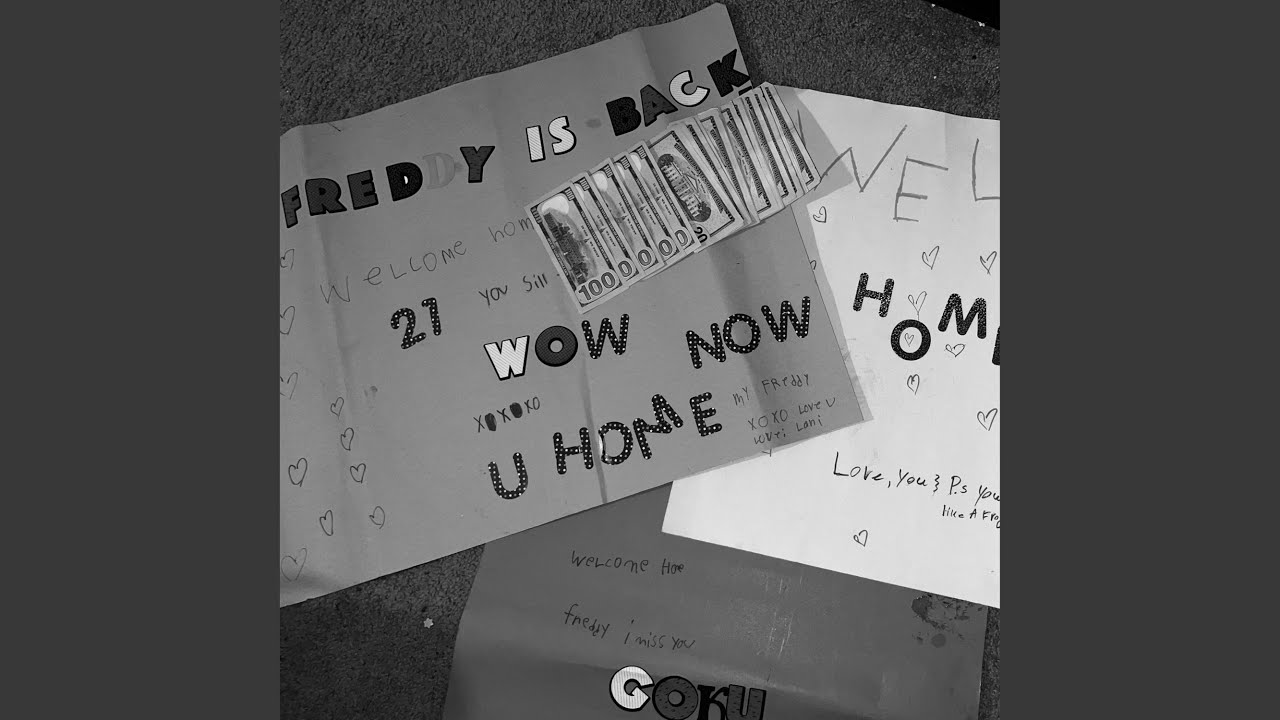 FREDDY IS BACK
WELCOME hom
you Sill
21
WOW NOW
XOXOXO
U HOME
MY FREDDY
XOXO Love U
Love: Lani
100
20
WEL
HOME
Love, You & P.s You
like A Frog
WELCOME Hoe
freddy i miss you
GOKU